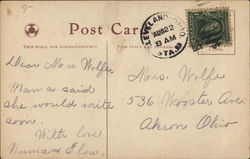 Post Card
THIS SPACE FOR CORRESPONDENCE
CLEVELAND, OHIO
AUG 22
8 AM
STA. B
Dear Mrs Wolfe,
Mama said
she would write
soon.
With love
Norma & Elsie
Mrs. Wolfe
536 Wooster Ave
Akron Ohio